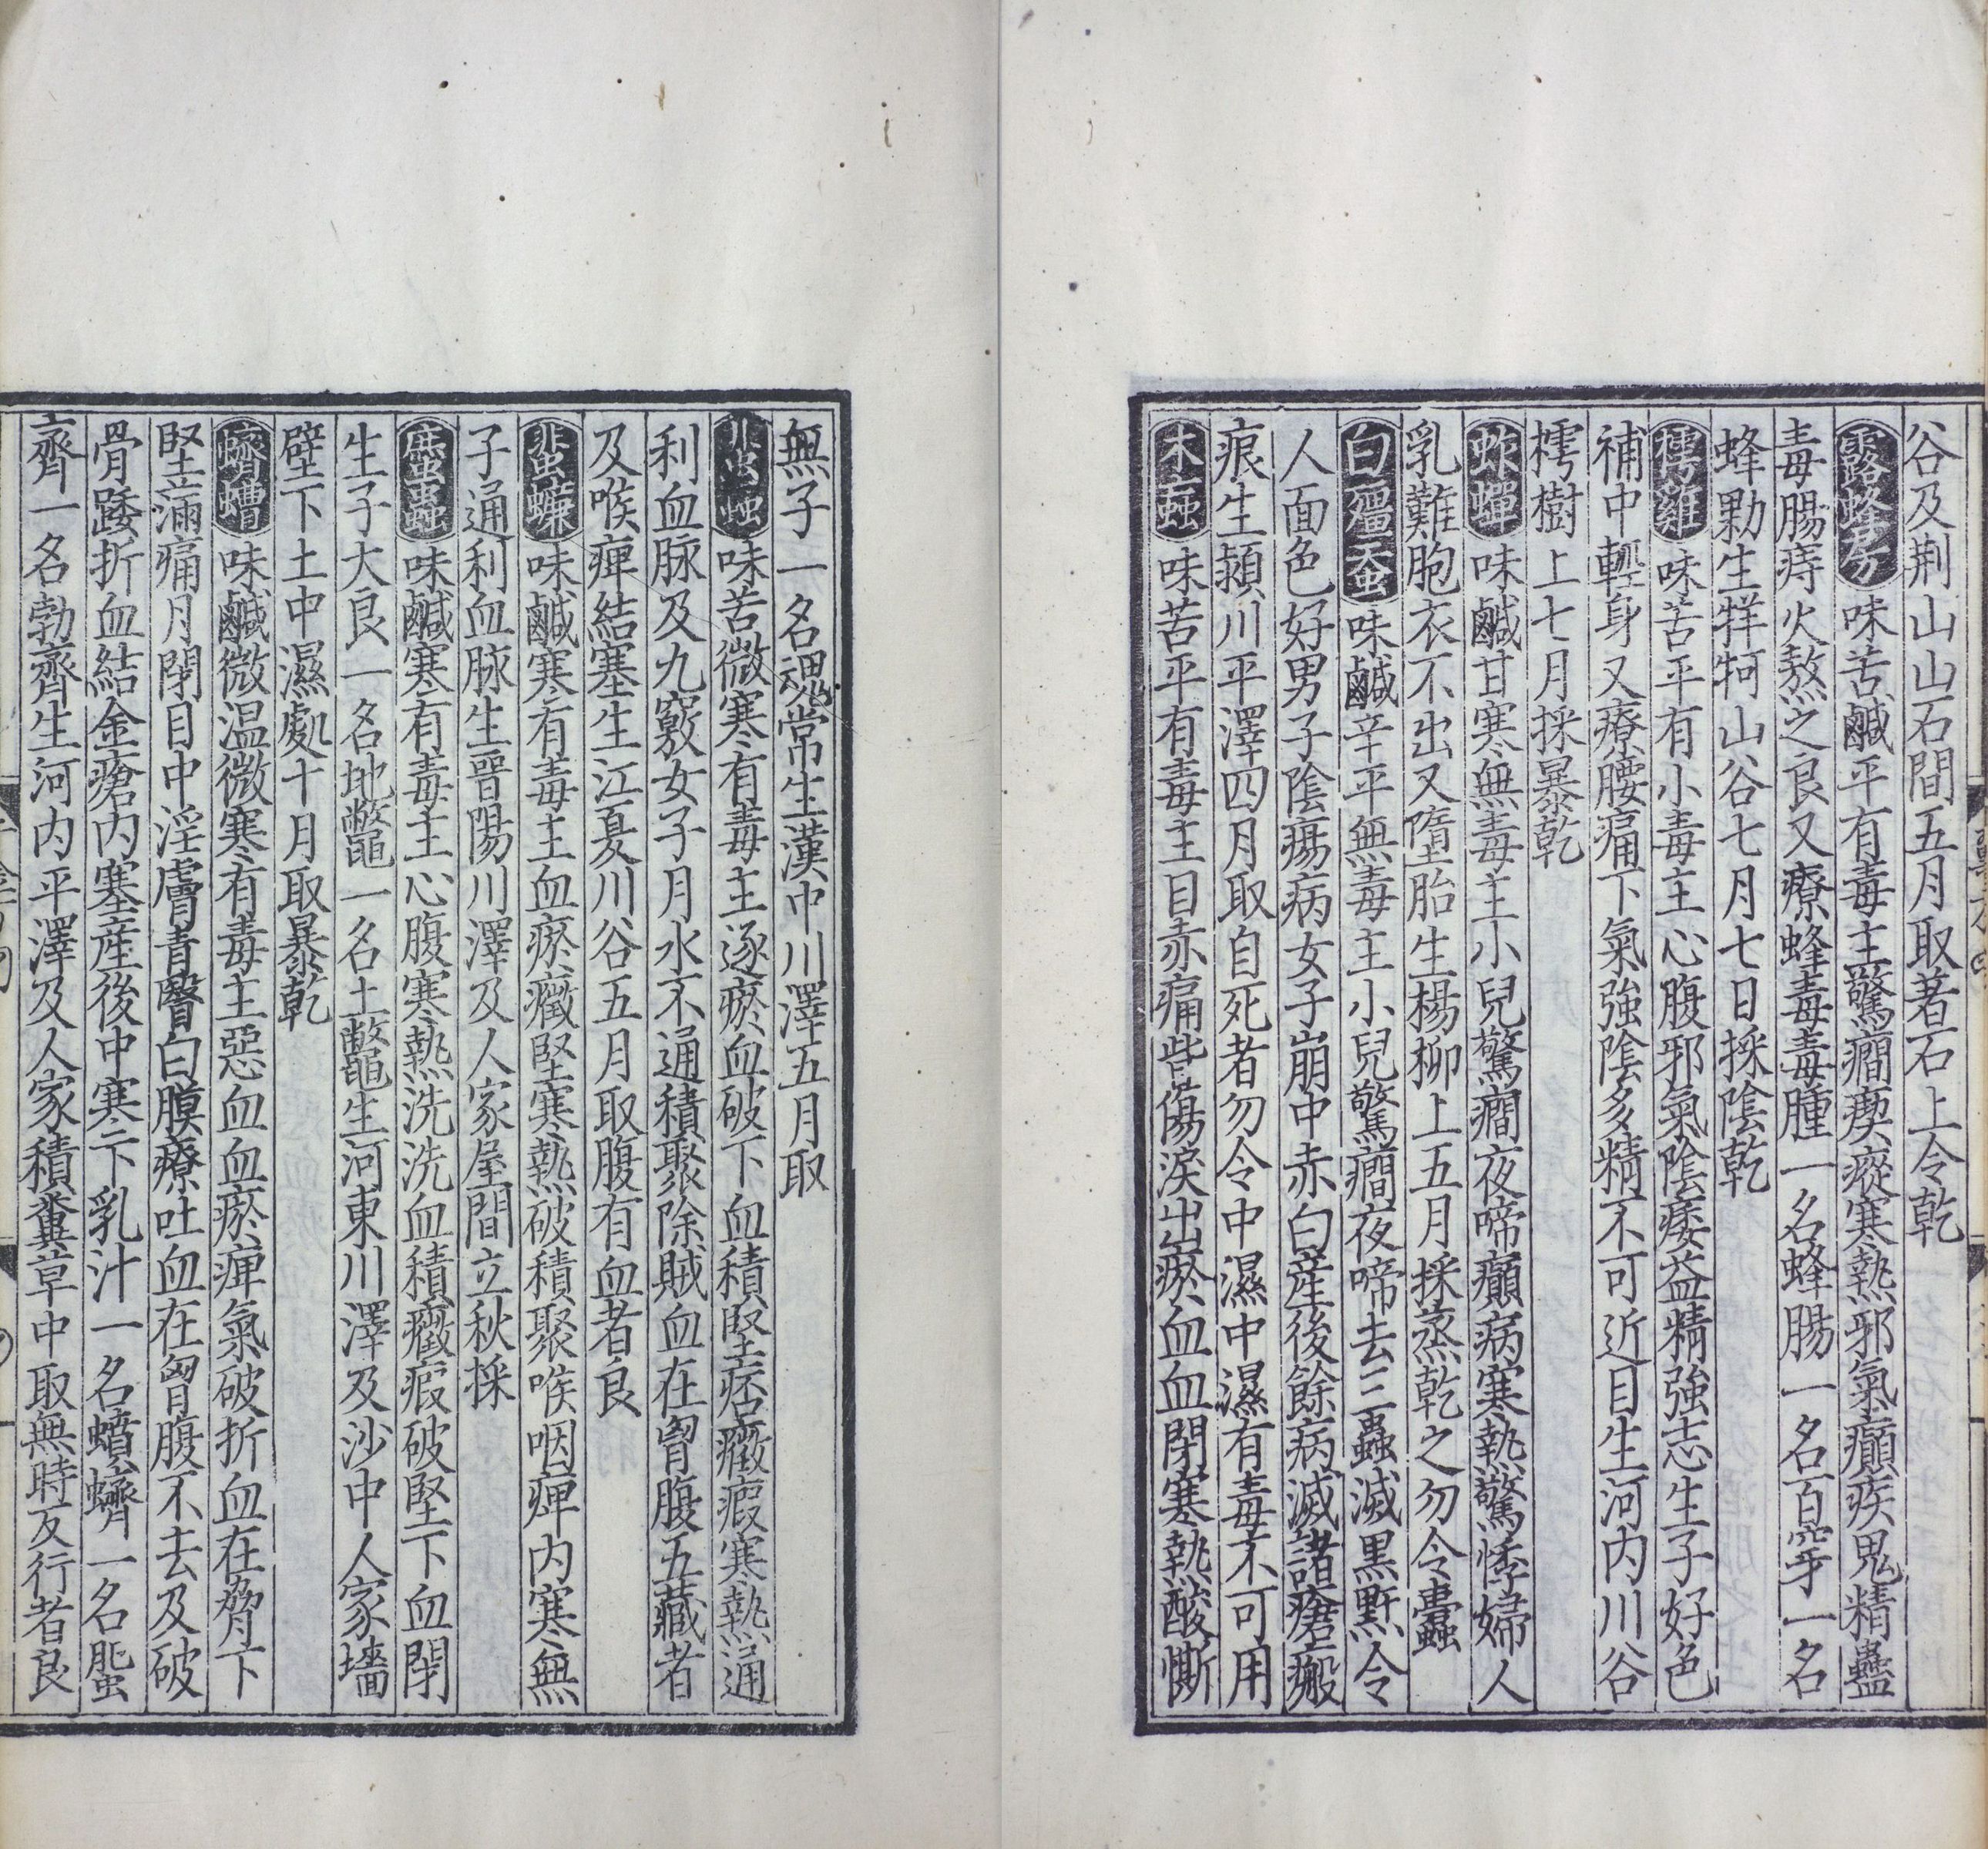 谷及荆山山石間五月取著石上令乾
露蜂房味苦鹹平有毒主驚癎瘈瘲寒熱邪氣癲疾鬼精蠱
毒腸痔火熬之良又療蜂毒毒腫一名蜂腸一名百穿一名
蜂勦生牂牁山谷七月七日採陰乾
樗雞味苦平有小毒主心腹邪氣陰痿益精強志生子好色
補中輕身又療腰痛下氣強陰多精不可近目生河内川谷
樗樹上七月採暴乾
蚱蟬味鹹甘寒無毒主小兒驚癎夜啼癲病寒熱驚悸婦人
乳難胞衣不出又墮胎生楊柳上五月採蒸乾之勿令蠹
白殭蚕味鹹辛平無毒主小兒驚癎夜啼去三蟲滅黒䵟令
人面色好男子陰瘍病女子崩中赤白産後餘病滅諸瘡瘢
痕生潁川平澤四月取自死者勿令中濕中濕有毒不可用
木䖟味苦平有毒主目赤痛眥傷淚出瘀血血閉寒熱酸㾷
無子一名魂常生漢中川澤五月取
蜚䖟味苦微寒有毒主逐瘀血破下血積堅痞癥瘕寒熱通
利血脉及九竅女子月水不通積聚除賊血在胷腹五藏者
及喉痺結塞生江夏川谷五月取腹有血者良
蜚蠊味鹹寒有毒主血瘀癥堅寒熱破積聚喉咽痺内寒無
子通利血脉生晉陽川澤及人家屋間立秋採
䗪蟲味鹹寒有毒主心腹寒熱洗洗血積癥瘕破堅下血閉
生子大良一名地鼈一名土鼈生河東川澤及沙中人家墻
壁下土中濕處十月取暴乾
蠐螬味鹹微温微寒有毒主惡血血瘀痺氣破折血在脅下
堅滿痛月閉目中淫膚青翳白膜療吐血在胷腹不去及破
骨踒折血結金瘡内塞産後中寒下乳汁一名蟦蠐一名蜰
齊一名勃齊生河内平澤及人家積糞草中取無時反行者良